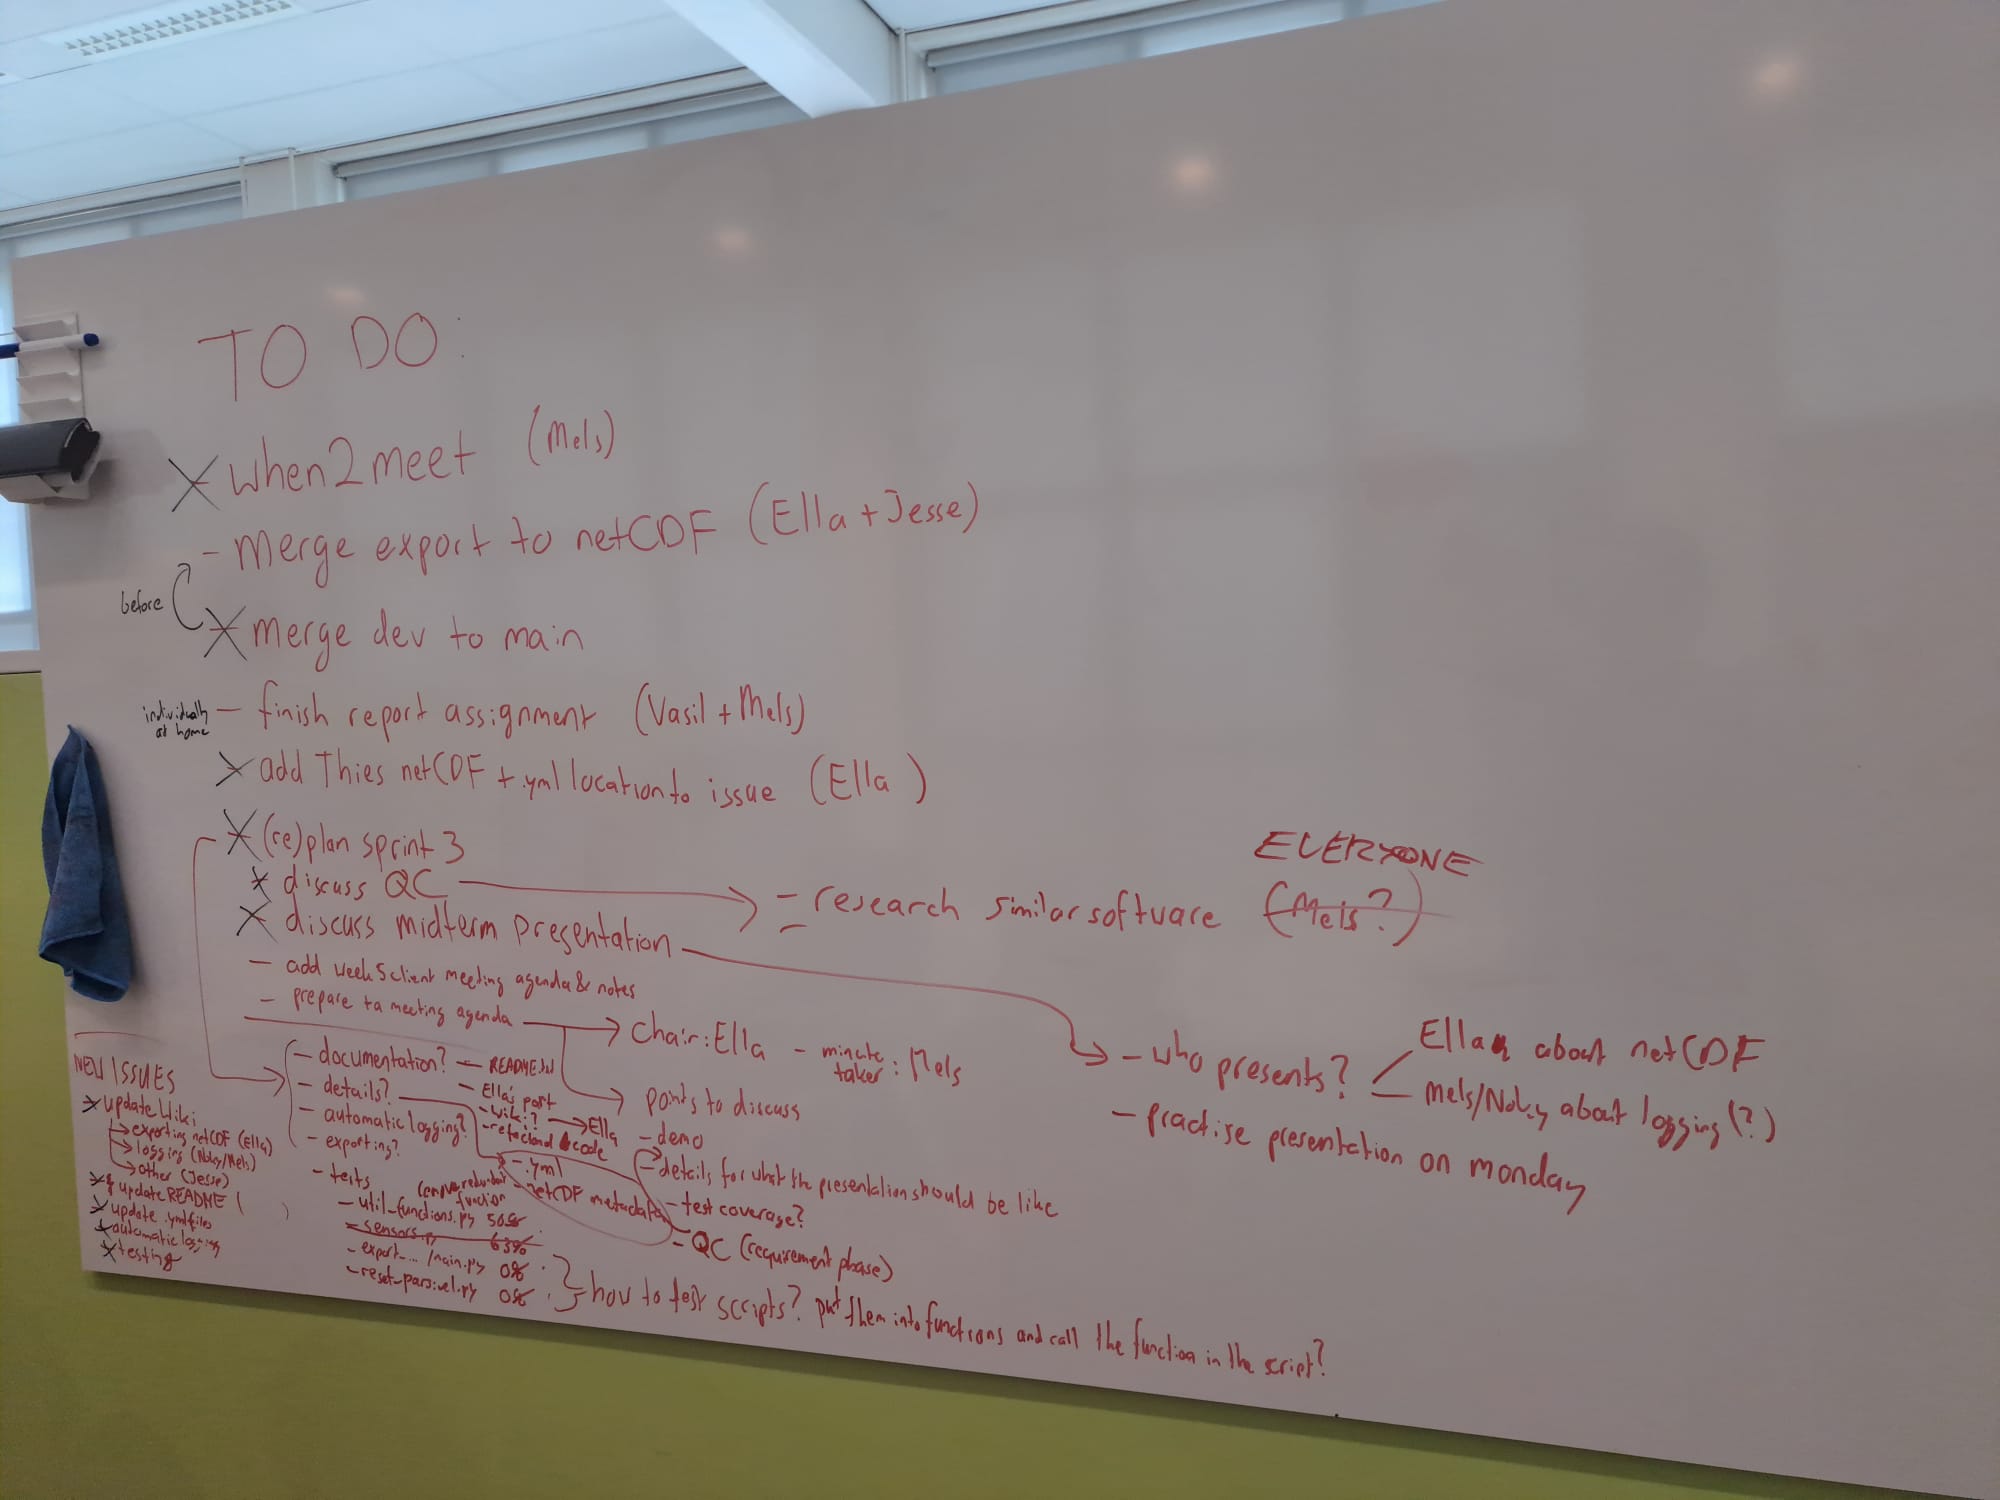 TO DO:
X when2meet (Mels)
- merge export to netCDF (Ella + Jesse)
before
X merge dev to main
individually at home
- finish report assignment (Vasil + Mels)
X add Thies netCDF + .yml location to issue (Ella )
X (re)plan sprint 3
X discuss QC
- research similar software (Mels?)
EVERYONE
X discuss midterm presentation
- who presents?
Ella about netCDF
Mels/Nolzy about logging (?)
- practise presentation on monday
- add week 5 client meeting agenda & notes
- prepare ta meeting agenda
Chair: Ella - minute taker: Mels
points to discuss
- demo
- details for what the presentation should be like
- test coverage?
- QC (requirement phase)
- documentation? - README.txt
- Ella's part
- wiki? → Ella
- code
- details?
- .yml
- netCDF metadata
- automatic logging?
- exporting?
- tests
remove redundant function
- util_functions.py 50%
- sensors.py 63%
- export_... /main.py 0%
- reset_parsivel.py 0%
how to test scripts? put them into functions and call the function in the script?
NEW ISSUES
X update Wiki
→ exporting netCDF (Ella)
→ logging (Nolzy/Mels)
→ other (Jesse)
X update README ( )
X update .yml files
X automatic logging
X testing